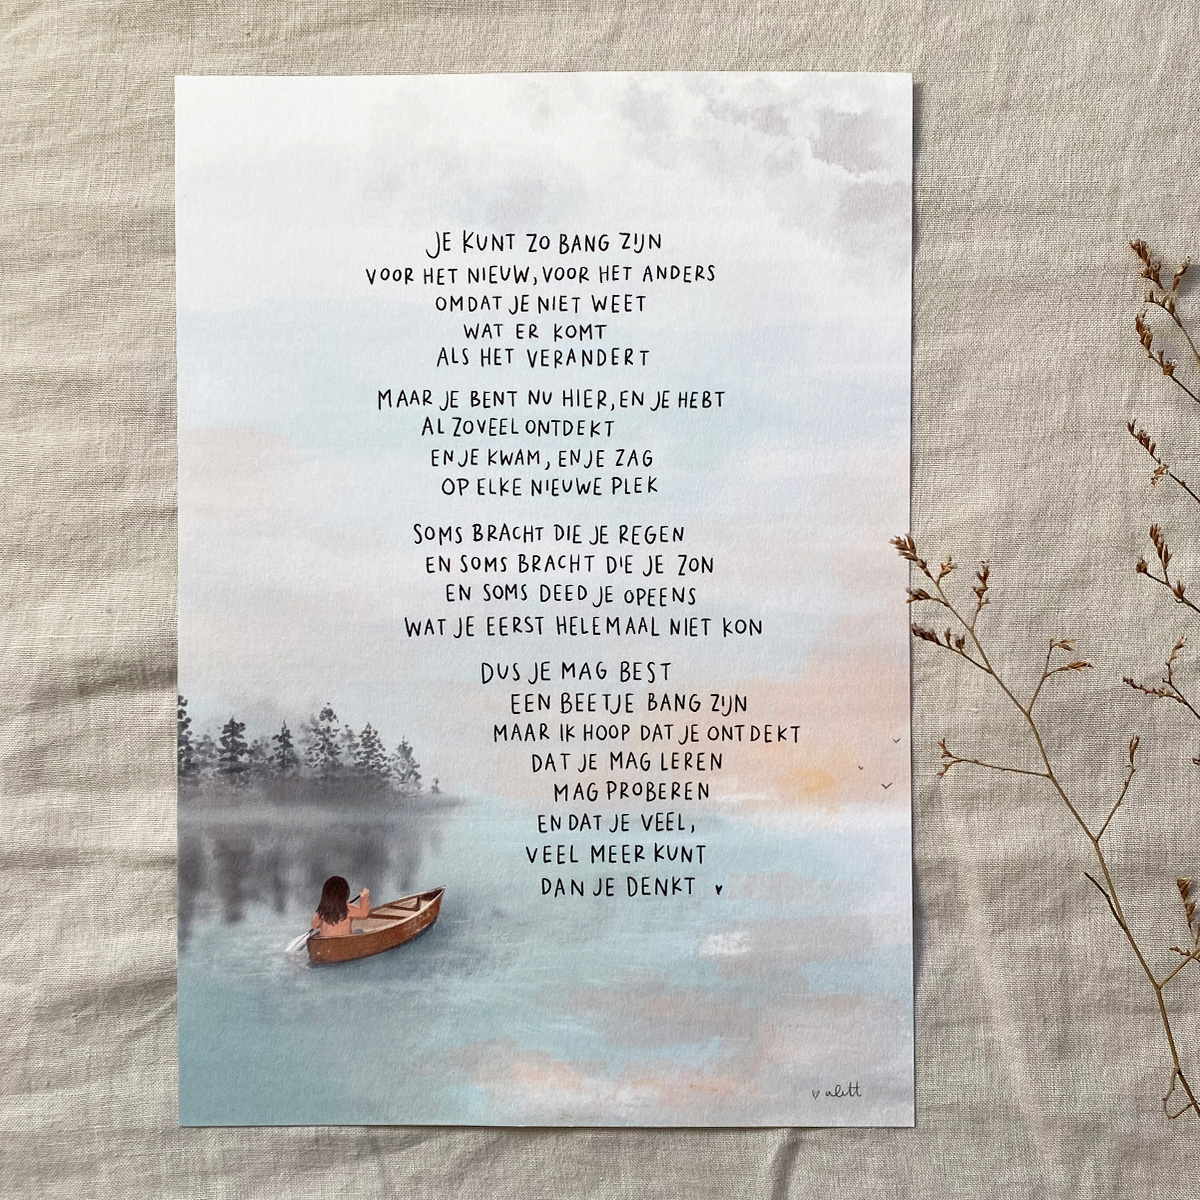 JE KUNT ZO BANG ZIJN
VOOR HET NIEUW, VOOR HET ANDERS
OMDAT JE NIET WEET
WAT ER KOMT
ALS HET VERANDERT
MAAR JE BENT NU HIER, EN JE HEBT
AL ZOVEEL ONTDEKT
EN JE KWAM, EN JE ZAG
OP ELKE NIEUWE PLEK
SOMS BRACHT DIE JE REGEN
EN SOMS BRACHT DIE JE ZON
EN SOMS DEED JE OPEENS
WAT JE EERST HELEMAAL NIET KON
DUS JE MAG BEST
EEN BEETJE BANG ZIJN
MAAR IK HOOP DAT JE ONTDEKT
DAT JE MAG LEREN
MAG PROBEREN
EN DAT JE VEEL,
VEEL MEER KUNT
DAN JE DENKT ♥
♡ alett